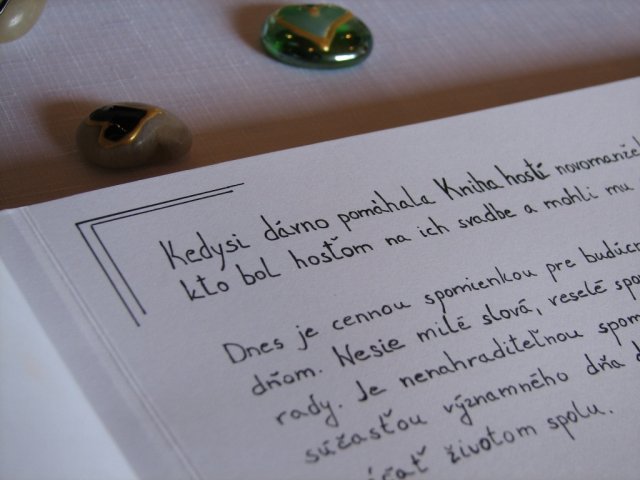 Kedysi dávno pomáhala Kniha hostí
kto bol hosťom na ich svadbe a mohli mu
Dnes je cennou spomienkou pre
dňom. Nesie milé slová, veselé
rady. Je nenahraditeľnou
súčasťou významného dňa
životom spolu.